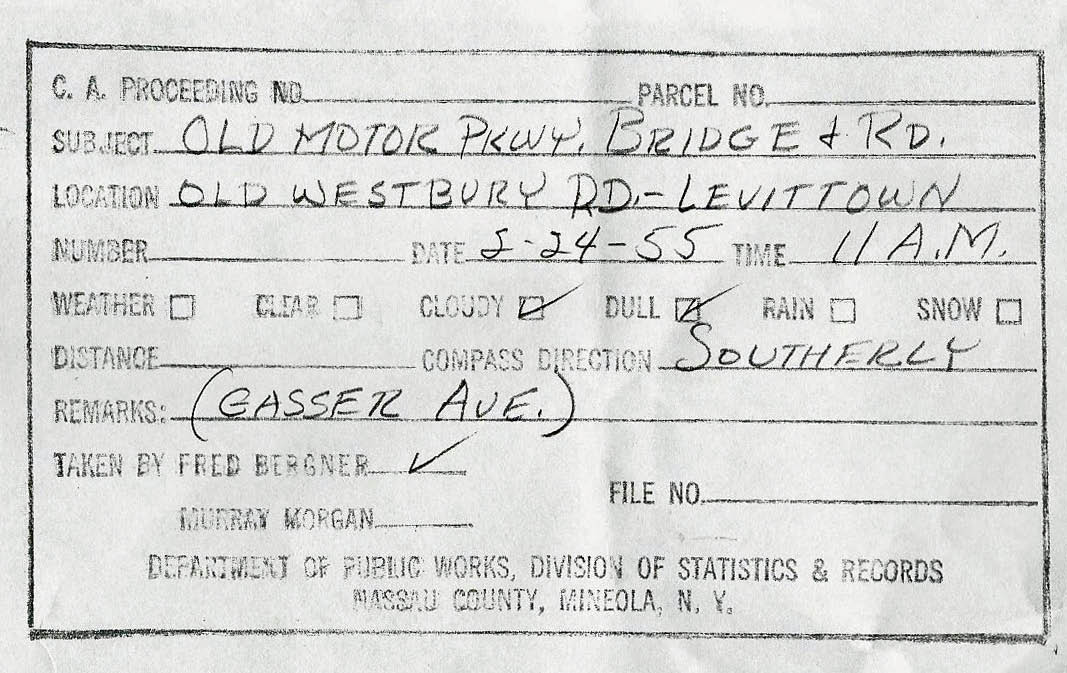 C. A. PROCEEDING NO. PARCEL NO.
SUBJECT OLD MOTOR PKWY. BRIDGE & RD.
LOCATION OLD WESTBURY RD. - LEVITTOWN
NUMBER DATE 2-24-55 TIME 11 A.M.
WEATHER ☐ CLEAR ☐ CLOUDY ☑ DULL ☑ RAIN ☐ SNOW ☐
DISTANCE COMPASS DIRECTION SOUTHERLY
REMARKS: (GASSER AVE.)
TAKEN BY FRED BERGNER ✓
FILE NO.
MURRAY MORGAN
DEPARTMENT OF PUBLIC WORKS, DIVISION OF STATISTICS & RECORDS
NASSAU COUNTY, MINEOLA, N. Y.